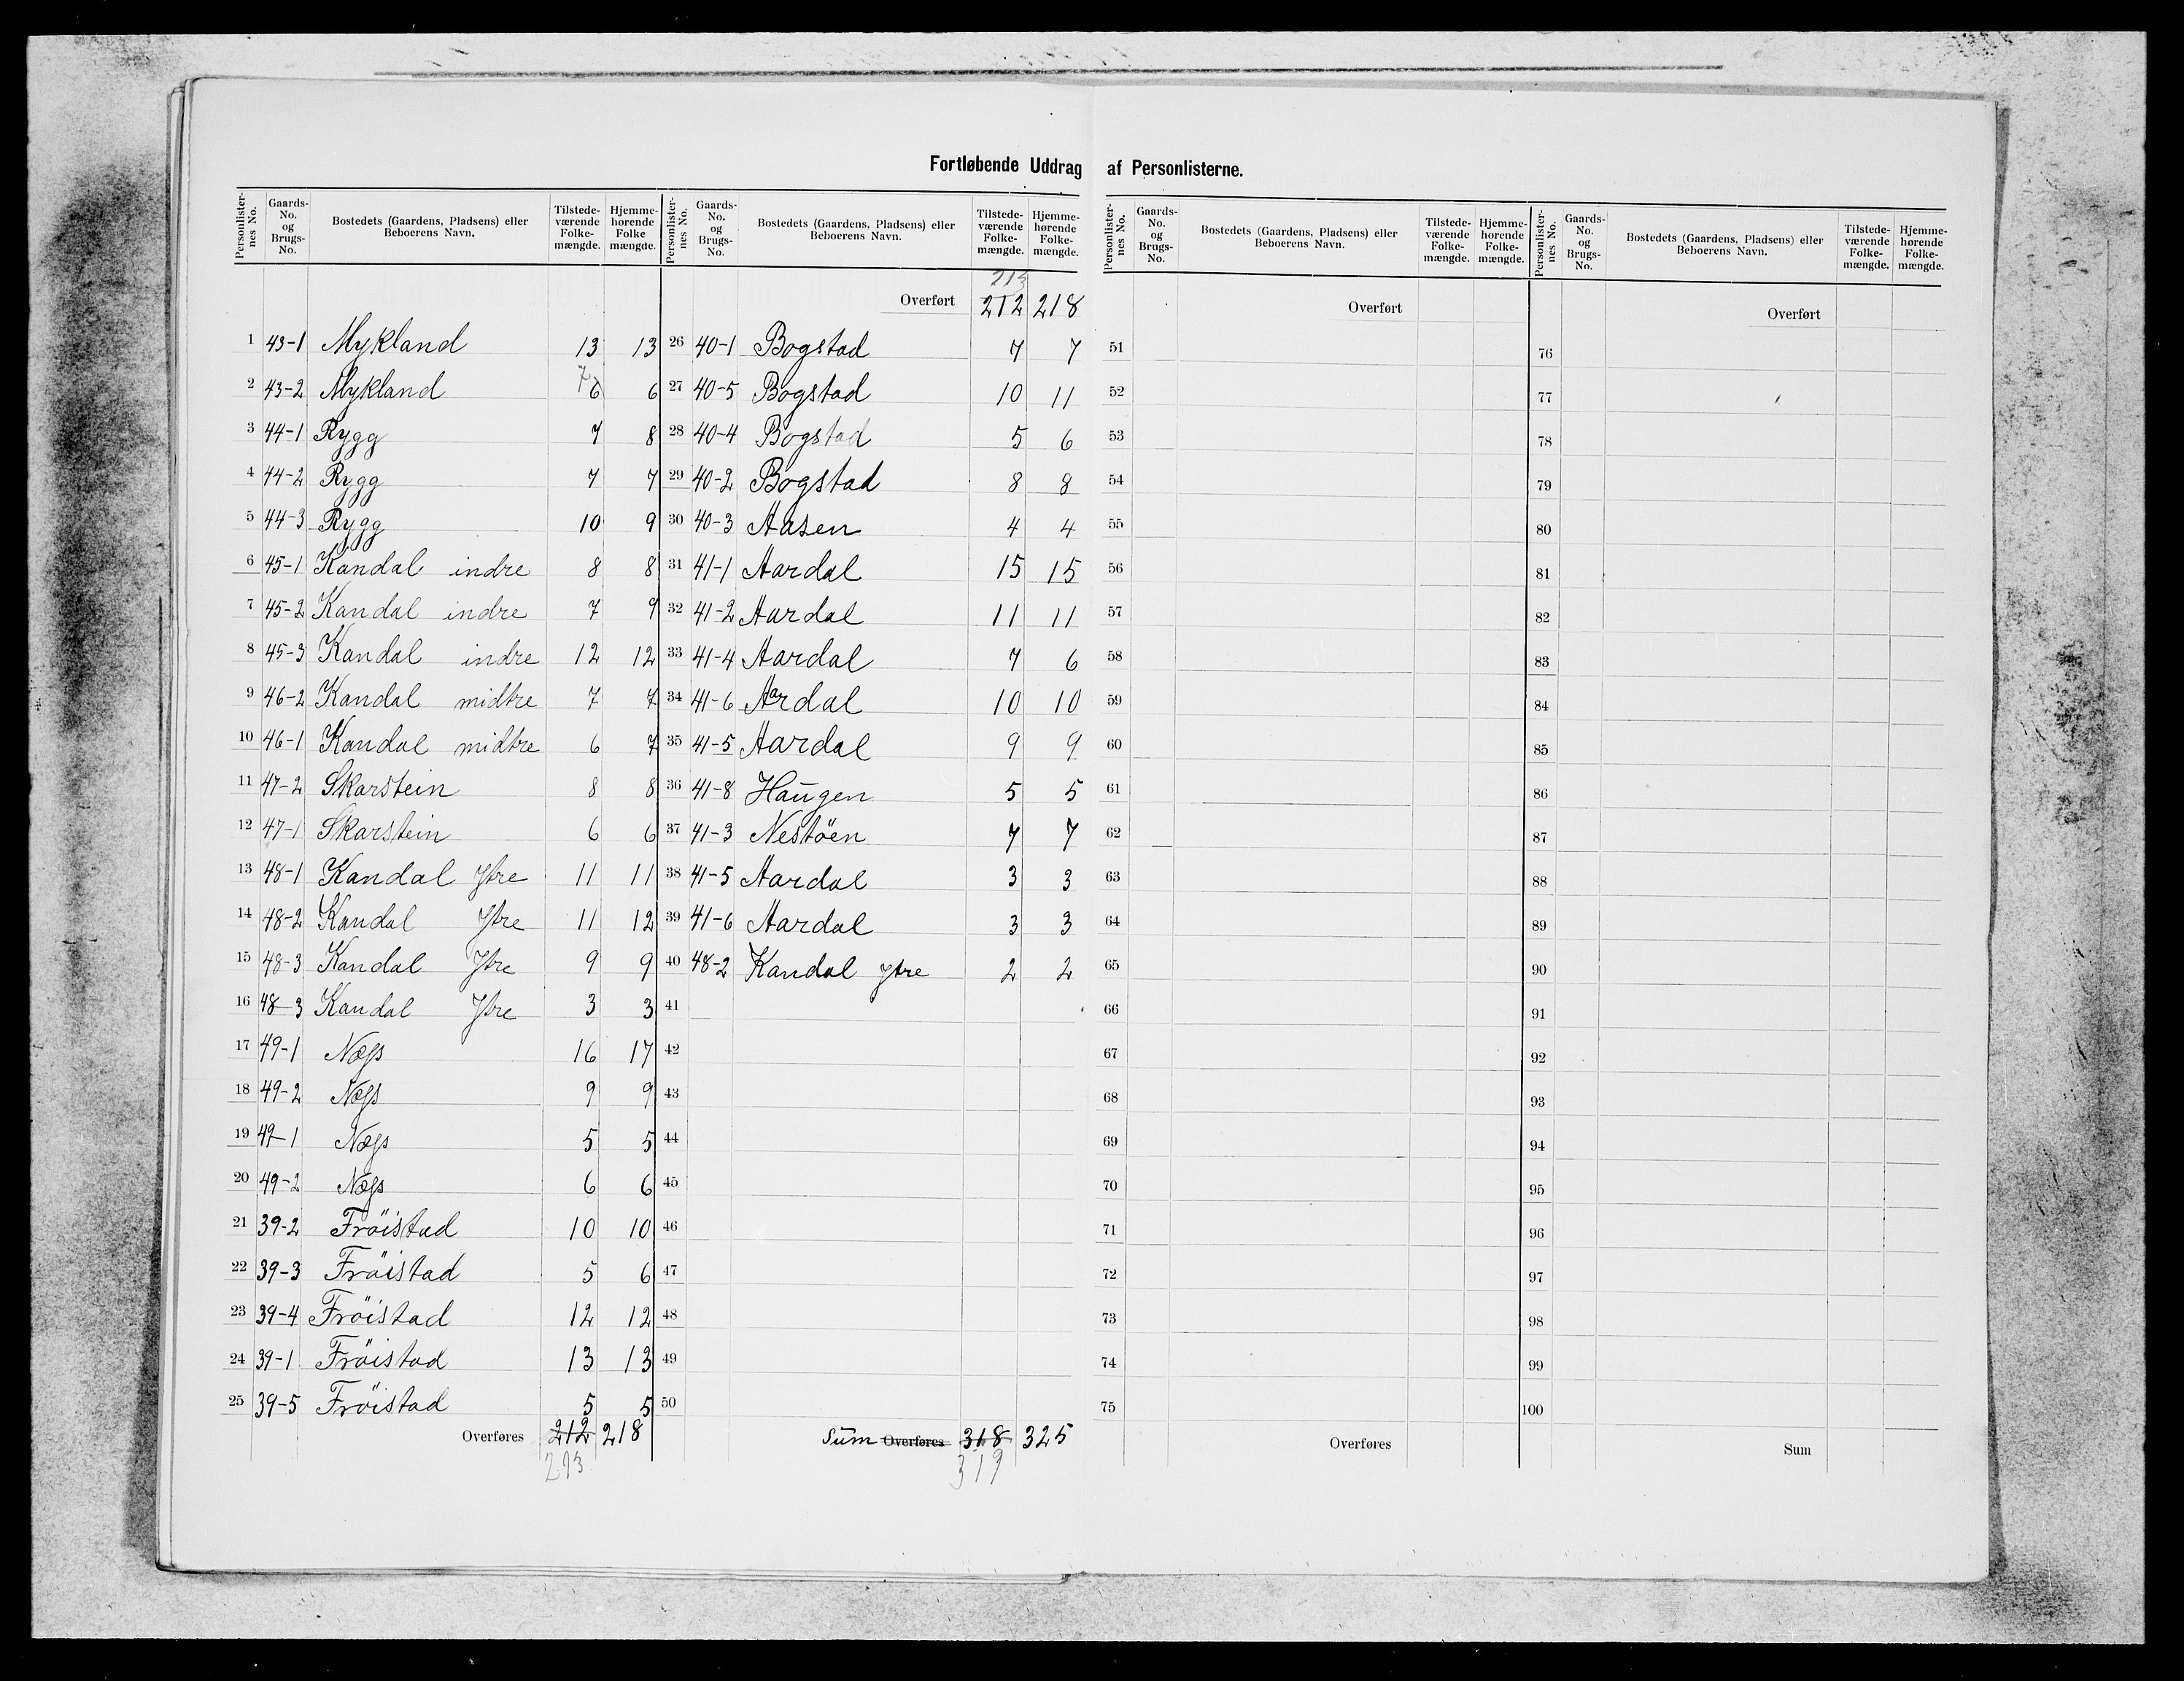 Fortløbende Uddrag af Personlisterne.
Personlister-nes No. | Gaards-No. og Brugs-No. | Bostedets (Gaardens, Pladsens) eller Beboerens Navn. | Tilstede-værende Folke-mængde. | Hjemme-hørende Folke mængde.
1 43-1 Mykland 13 13
2 43-2 Mykland 7 6 6
3 44-1 Rygg 7 8
4 44-2 Rygg 7 7
5 44-3 Rygg 10 9
6 45-1 Kandal indre 8 8
7 45-2 Kandal indre 7 9
8 45-3 Kandal indre 12 12
9 46-2 Kandal midtre 7 7
10 46-1 Kandal midtre 6 7
11 47-2 Skarstein 8 8
12 47-1 Skarstein 6 6
13 48-1 Kandal Ytre 11 11
14 48-2 Kandal Ytre 11 12
15 48-3 Kandal Ytre 9 9
16 48-3 Kandal Ytre 3 3
17 49-1 Næs 16 17
18 49-2 Næs 9 9
19 49-1 Næs 5 5
20 49-2 Næs 6 6
21 39-2 Fröistad 10 10
22 39-3 Fröistad 5 6
23 39-4 Fröistad 12 12
24 39-1 Fröistad 13 13
25 39-5 Fröistad 5 5
Overføres 212 218
213
Personlister-nes No. | Gaards-No. og Brugs-No. | Bostedets (Gaardens, Pladsens) eller Beboerens Navn. | Tilstede-værende Folke-mængde. | Hjemme-hørende Folke-mængde.
213
Overført 212 218
26 40-1 Bogstad 7 7
27 40-5 Bogstad 10 11
28 40-4 Bogstad 5 6
29 40-2 Bogstad 8 8
30 40-3 Aasen 4 4
31 41-1 Aardal 15 15
32 41-2 Aardal 11 11
33 41-4 Aardal 7 6
34 41-6 Aardal 10 10
35 41-5 Aardal 9 9
36 41-8 Haugen 5 5
37 41-3 Nestöen 7 7
38 41-5 Aardal 3 3
39 41-6 Aardal 3 3
40 48-2 Kandal ytre 2 2
41
42
43
44
45
46
47
48
49
50
Sum Overføres 318 325
319
Personlister-nes No. | Gaards-No. og Brugs-No. | Bostedets (Gaardens, Pladsens) eller Beboerens Navn. | Tilstede-værende Folke-mængde. | Hjemme-hørende Folke-mængde.
Overført
51
52
53
54
55
56
57
58
59
60
61
62
63
64
65
66
67
68
69
70
71
72
73
74
75
Overføres
Personlister-nes No. | Gaards-No. og Brugs-No. | Bostedets (Gaardens, Pladsens) eller Beboerens Navn. | Tilstede-værende Folke-mængde. | Hjemme-hørende Folke-mængde.
Overført
76
77
78
79
80
81
82
83
84
85
86
87
88
89
90
91
92
93
94
95
96
97
98
99
100
Sum